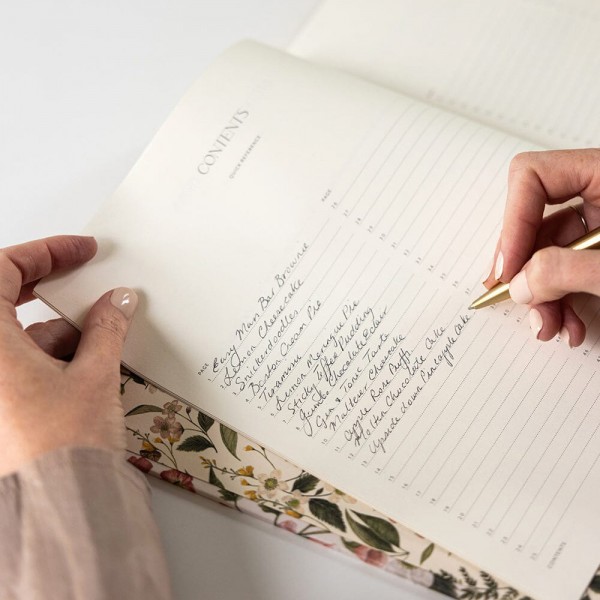 CONTENTS
QUICK REFERENCE
PAGE
Easy Mars Bar Brownie
Lemon Cheesecake
Snickerdoodles
Boston Cream Pie
Tiramisu
Lemon Meringue Pie
Sticky Toffee Pudding
Jumbo Chocolate Eclair
Gin & Tonic Tart
Malteser Cheescake
Apple Rose Puff
Molten Chocolate Cake
Upside down Pineapple Cake
PAGE
CONTENTS